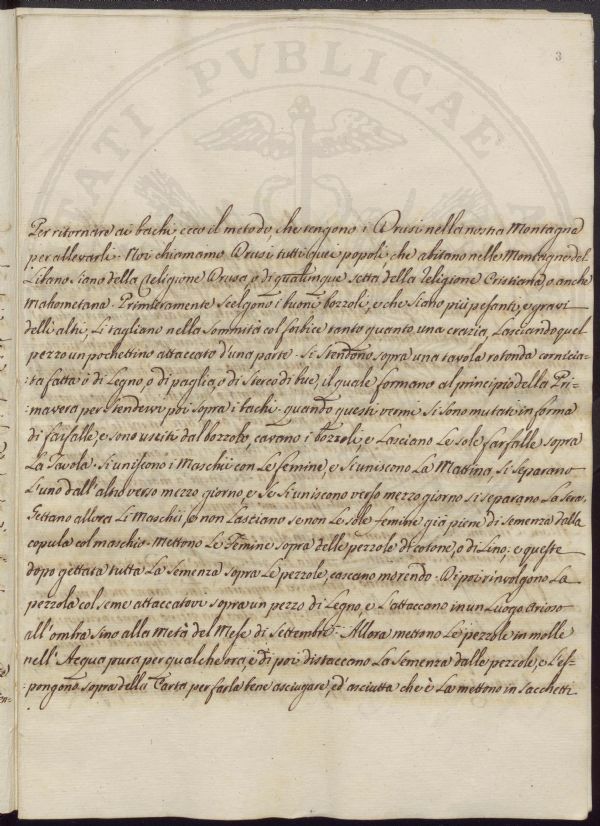 3
Per ritornare ai bachi ecco il metodo che tengono i Drusi nella nostra Montagna
per allevarli. Noi chiamamo Drusi tutti quei popoli che abitano nelle Montagne del
Libano siano della Religione Drusa, o di qualunque setta della religione Cristiana, o anche
Mahometana. Primieramente scelgono i buoni bozzoli, e che siano più pesanti, e gravi
delli altri, Li tagliano nella sommità col forbice tanto quanto una crazia, Lasciando quel
pezzo un pochettino attaccato d'una parte. Si stendono sopra una tavola rotonda cornicia=
:ta fatta o di Legno, o di paglia, o di sterco di bue, il quale formano al principio della Pri=
:mavera per stendervi poi sopra i bachi. quando questi vermi si sono mutati in forma
di farfalle, e sono usciti dal bozzolo, cavano i bozzoli, e Lasciano Le sole farfalle sopra
La Tavola. Si uniscono i Maschii con Le femine, e si uniscono La Matina, si separano
L'uno dall'altro verso mezzo giorno, e se si uniscono verso mezzo giorno si separano La sera,
Gettano allora Li Maschii, e non Lasciano se non Le sole femine già piene di semenza dalla
copula col maschio. Mettono Le Femine sopra delle pezzole di cotone, o di Lino; e queste
dopo gettata tutta La semenza sopra Le pezzole, cascano morendo. Di poi rinvolgono La
pezzola col seme attaccatovi sopra un pezzo di Legno, e L'attaccano in un Luogo arioso
all'ombra sino alla metà del Mese di settembre. Allora mettono Le pezzole in molle
nell'Acqua pura per qualche ora, e di poi distaccono La semenza dalle pezzole, e L'es=
:pongono sopra della Carta per farla bene asciugare, ed'asciutta che è La mettono in sacchetti
ATI PVBLICAE